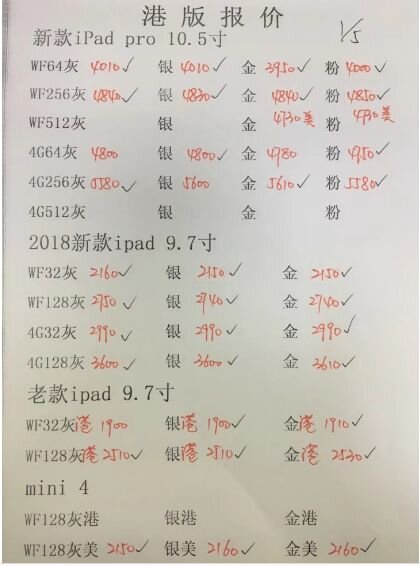 港版报价
新款iPad pro 10.5寸 1/5
WF64灰 4010✓ 银 4010✓ 金 3950✓ 粉 4000✓
WF256灰 4840✓ 银 4830✓ 金 4840✓ 粉 4850✓
WF512灰 银 金 4930美 粉 4930美
4G64灰 4800 银 4800✓ 金 4780 粉 4750✓
4G256灰 5580✓ 银 5600 金 5610✓ 粉 5580✓
4G512灰 银 金 粉
2018新款ipad 9.7寸
WF32灰 2160✓ 银 2150✓ 金 2150✓
WF128灰 2750✓ 银 2740✓ 金 2740✓
4G32灰 2990✓ 银 2990✓ 金 2990✓
4G128灰 3600✓ 银 3600✓ 金 3610✓
老款ipad 9.7寸
WF32灰港 1900 银港 1900✓ 金港 1910✓
WF128灰港 2510✓ 银港 2510✓ 金港 2520✓
mini 4
WF128灰港 银港 金港
WF128灰美 2150✓ 银美 2160✓ 金美 2160✓